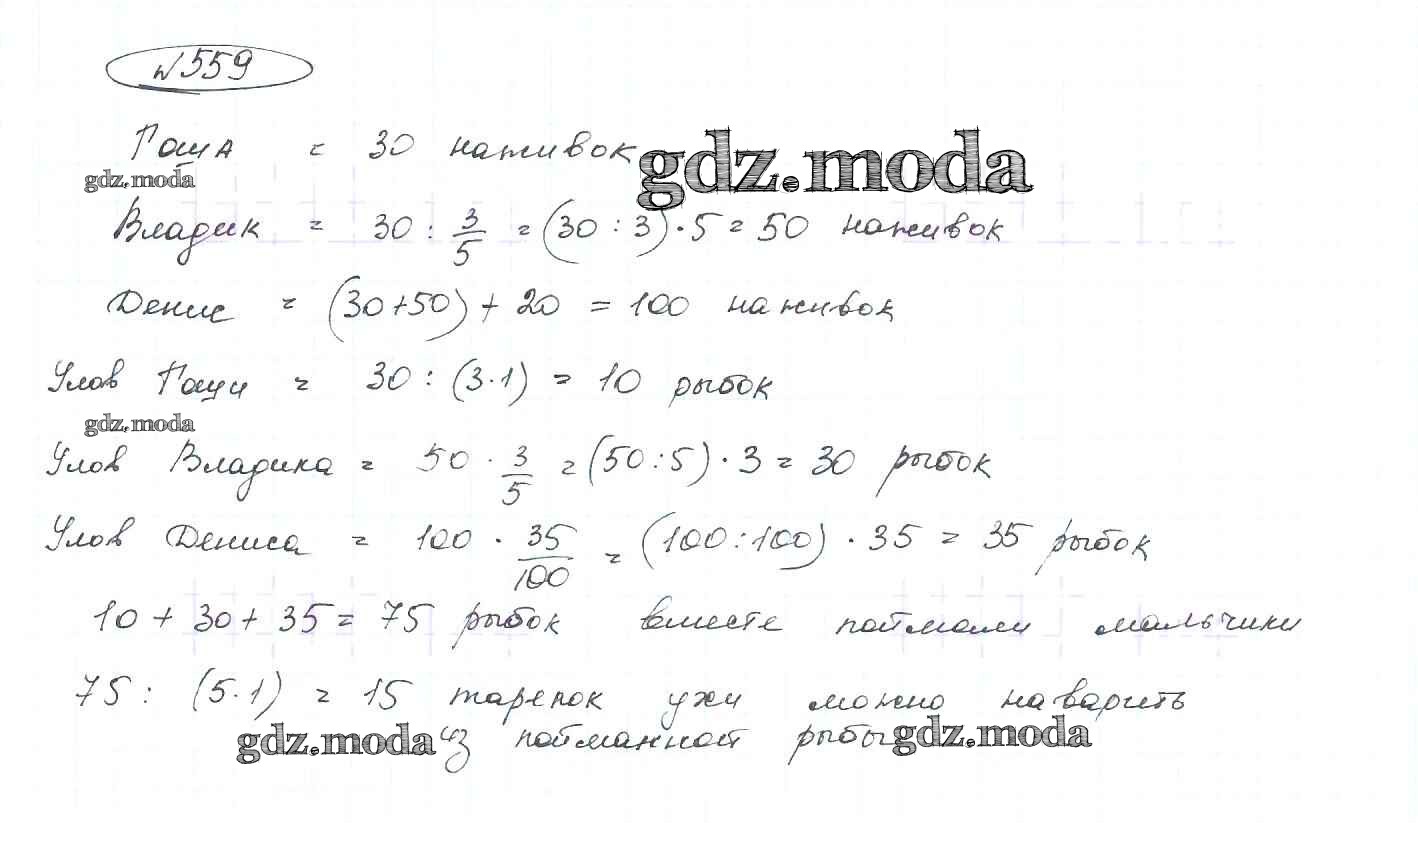 №559
Гоша = 30 наживок
gdz.moda
gdz.moda
Владик = 30 : 3/5 = (30 : 3) · 5 = 50 наживок
Денис = (30+50) + 20 = 100 наживок
Улов Гоши = 30 : (3·1) = 10 рыбок
gdz.moda
Улов Владика = 50 · 3/5 = (50:5) · 3 = 30 рыбок
Улов Дениса = 100 · 35/100 = (100:100) · 35 = 35 рыбок
10 + 30 + 35 = 75 рыбок вместе поймали мальчики
75 : (5·1) = 15 тарелок ухи можно наварить
gdz.moda из пойманной рыбы gdz.moda